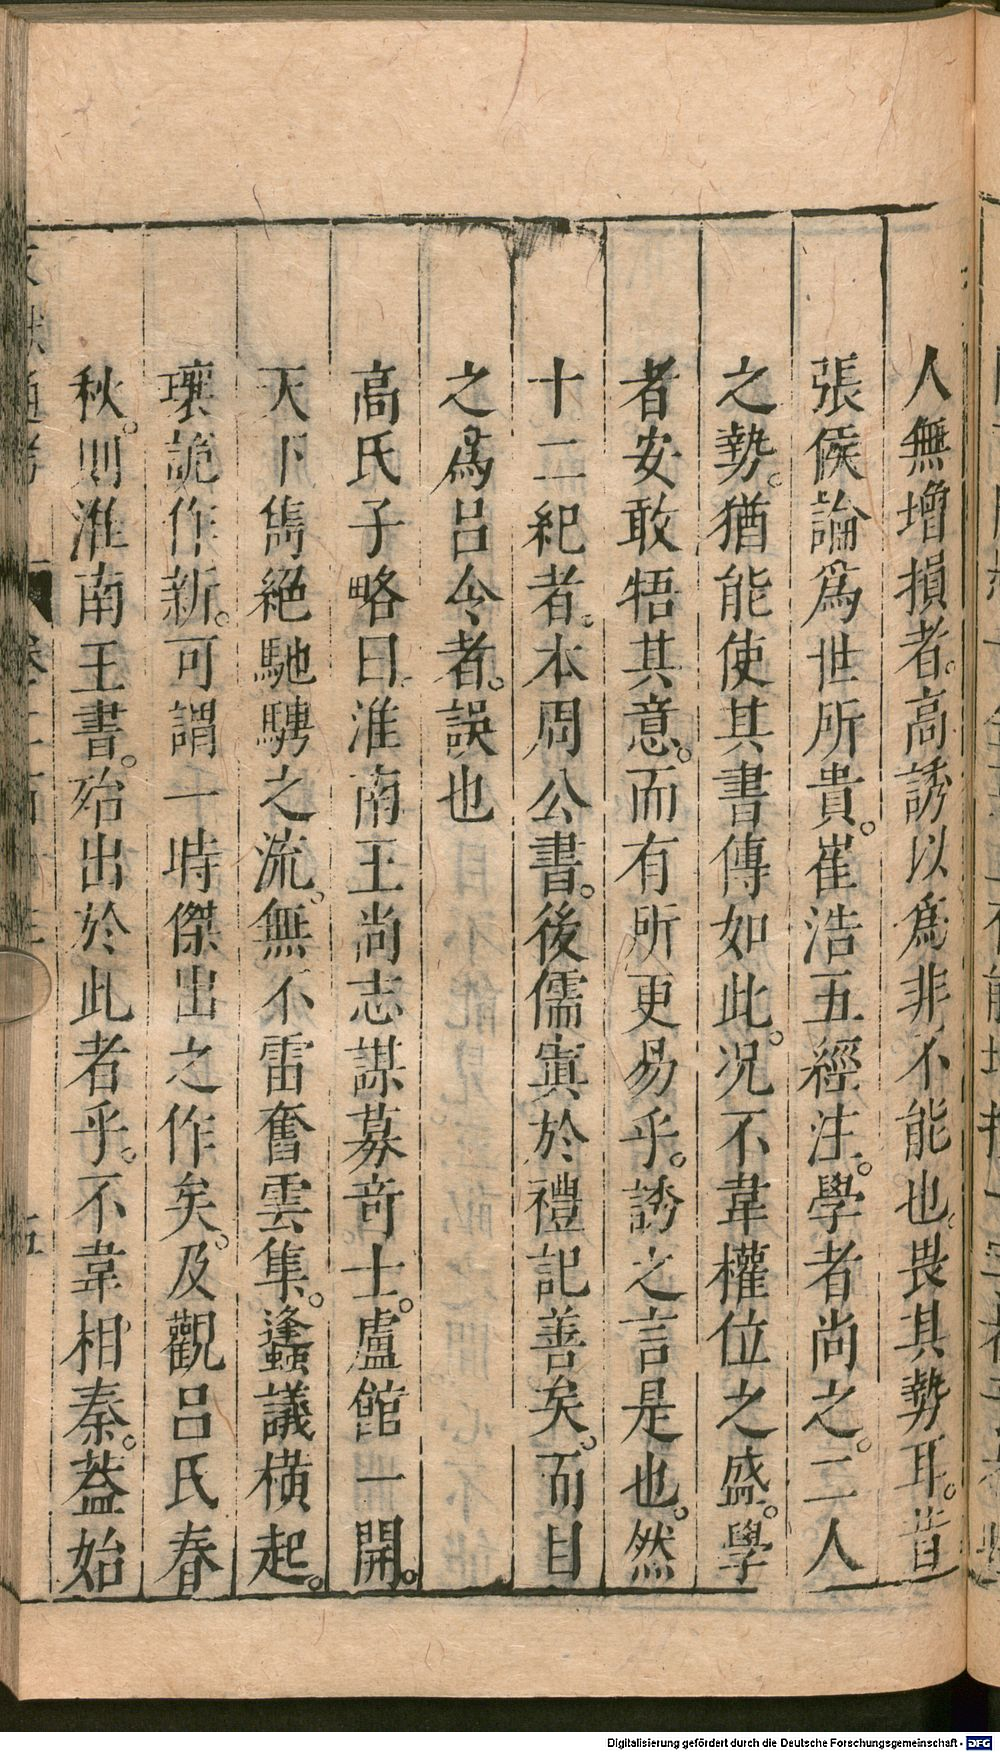 人無增損者。高誘以爲非不能也。畏其勢耳。昔
張侯論爲世所貴。崔浩五經注。學者尚之。二人
之勢。猶能使其書傳如此。况不韋權位之盛。學
者安敢牾其意。而有所更易乎。誘之言是也。然
十二紀者。本周公書。後儒寘於禮記善矣。而目
之爲呂令者。誤也
高氏子略曰。淮南王尚志謀募竒士。廬館一開。
天下雋絕馳騁之流。無不雷奮雲集。蠭議橫起。
瓌詭作新。可謂一時傑出之作矣。及觀呂氏春
秋。則淮南王書。殆出於此者乎。不韋相秦。葢始
Digitalisierung gefördert durch die Deutsche Forschungsgemeinschaft - DFG